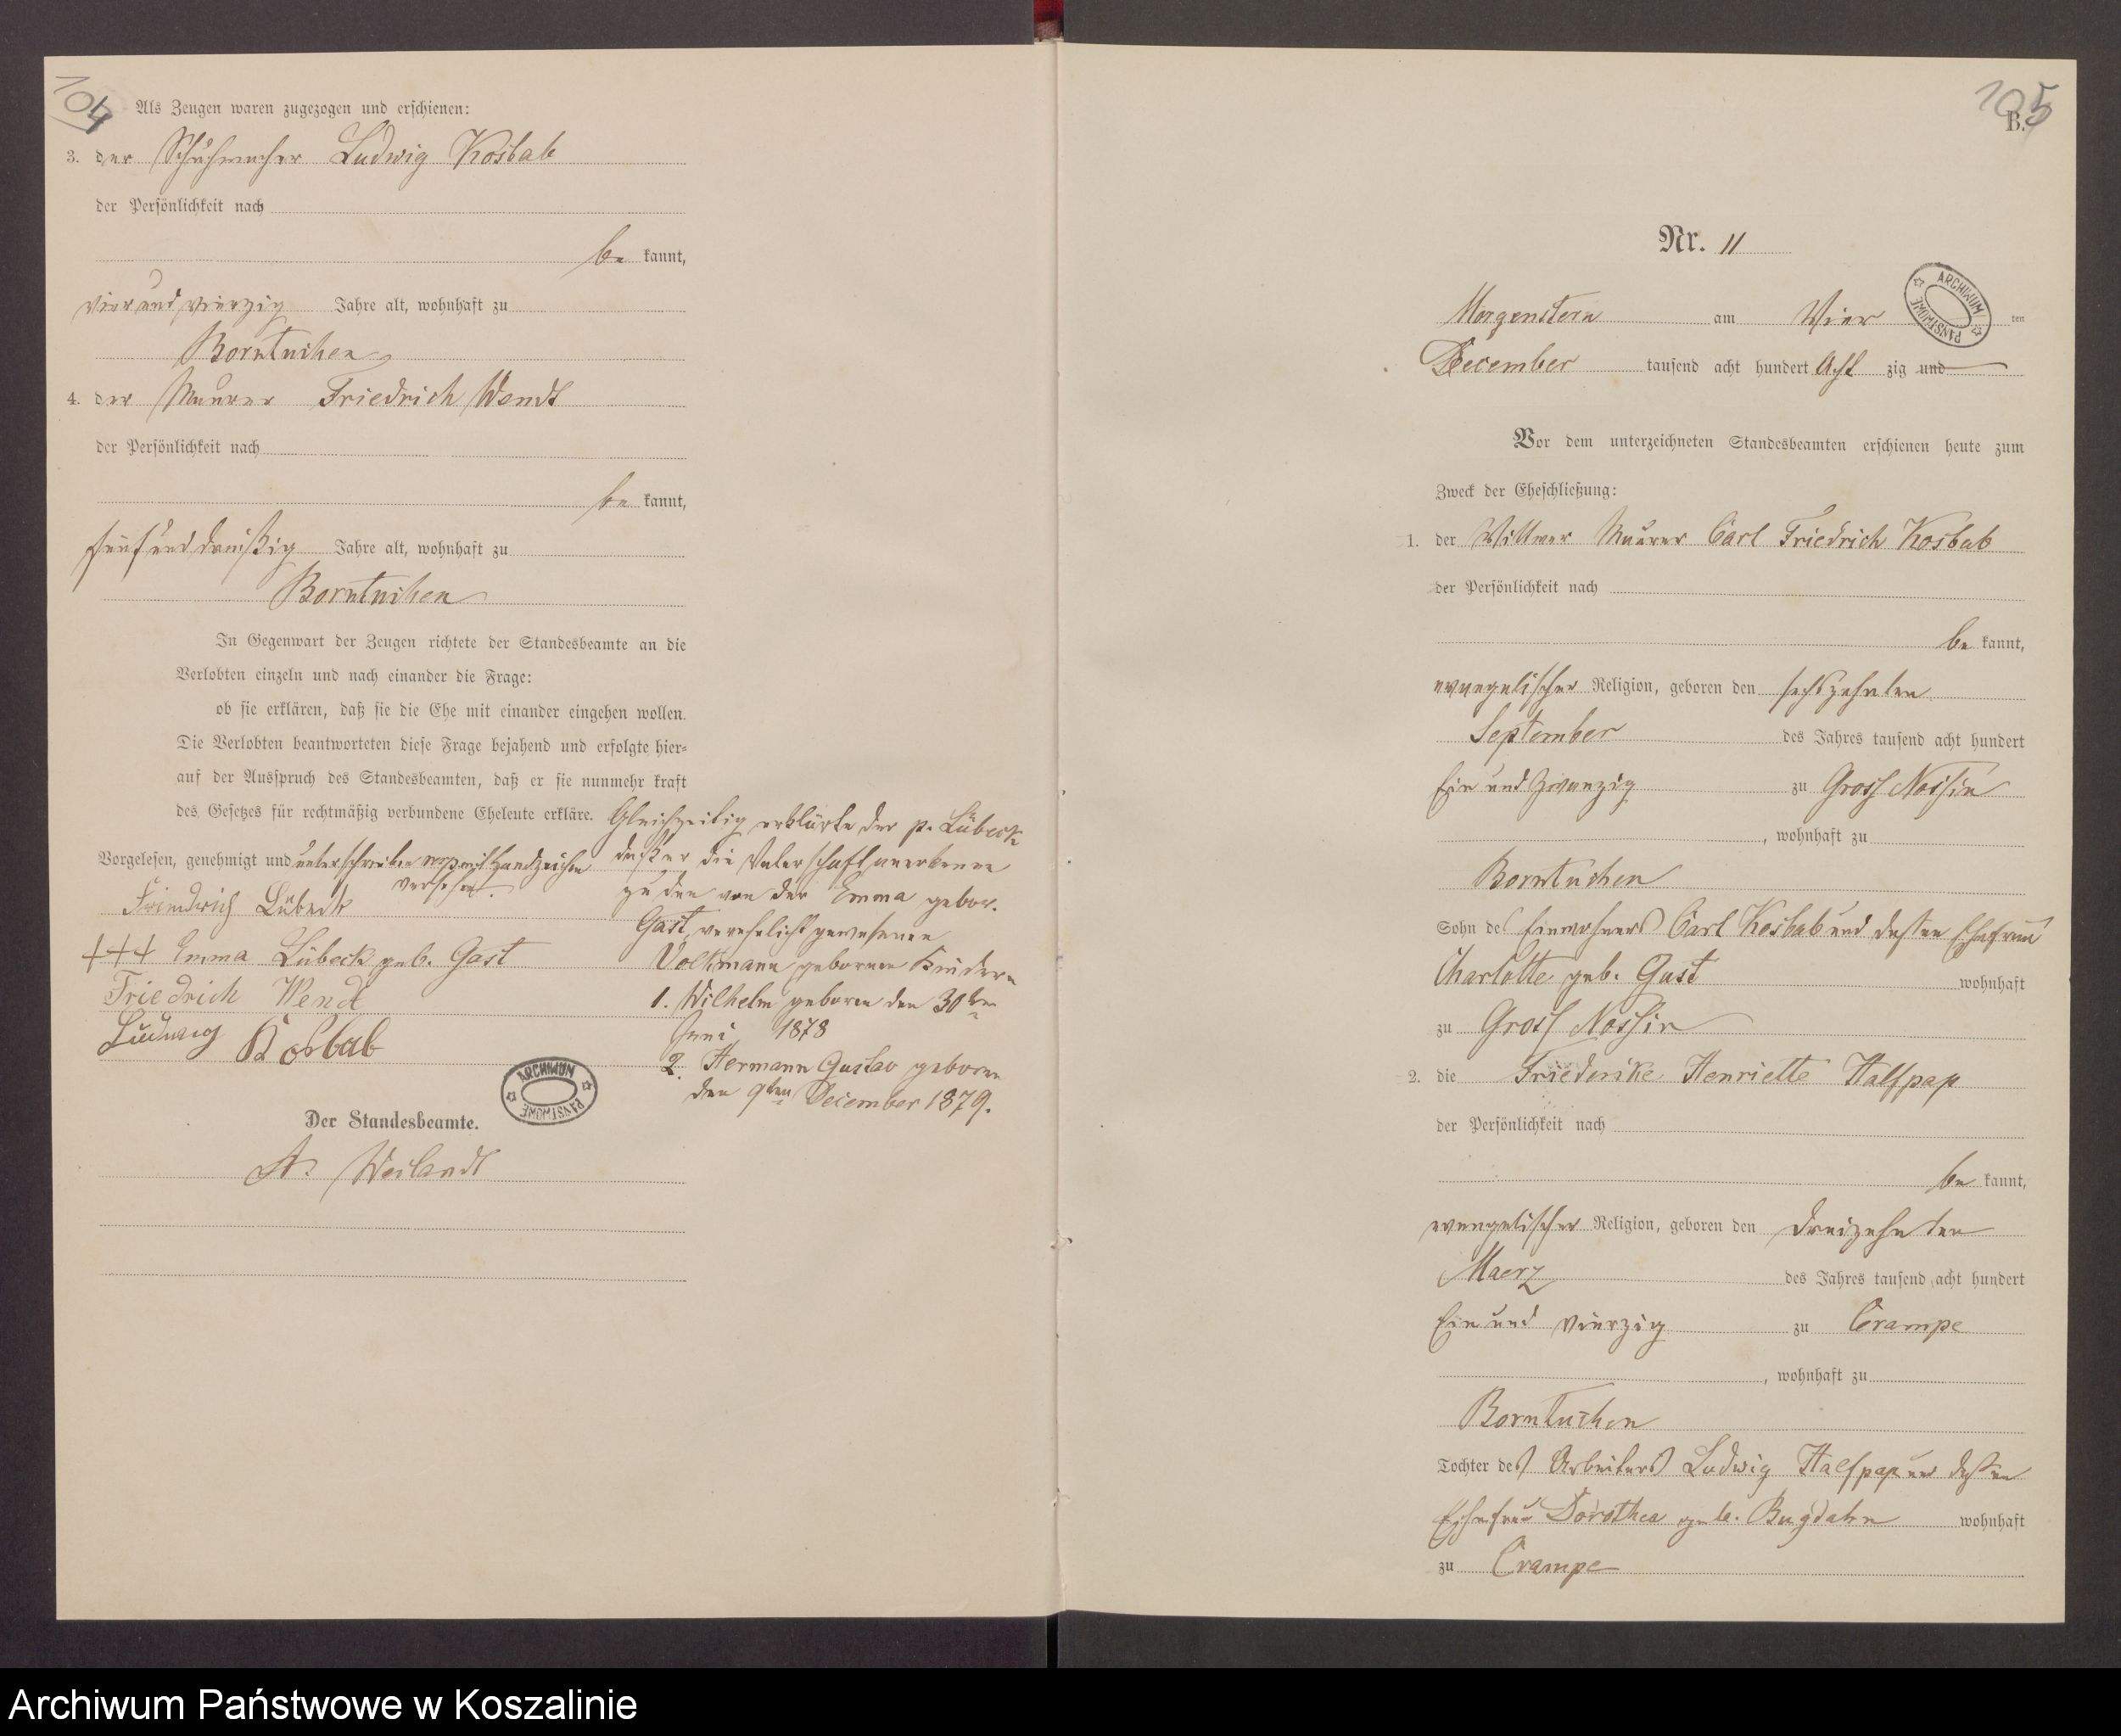 104
Als Zeugen waren zugezogen und erschienen:
3. der Schuhmacher Ludwig Kosbab
der Persönlichkeit nach
be kannt,
vier und vierzig Jahre alt, wohnhaft zu
Borntuchen
4. der Maurer Friedrich Wendt
der Persönlichkeit nach
be kannt,
fünf und dreißig Jahre alt, wohnhaft zu
Borntuchen
In Gegenwart der Zeugen richtete der Standesbeamte an die
Verlobten einzeln und nach einander die Frage:
ob sie erklären, daß sie die Ehe mit einander eingehen wollen.
Die Verlobten beantworteten diese Frage bejahend und erfolgte hier-
auf der Ausspruch des Standesbeamten, daß er sie nunmehr kraft
des Gesetzes für rechtmäßig verbundene Eheleute erkläre.
Vorgelesen, genehmigt und unterschrieben mit Handzeichen
versehen.
Friedrich Lübeck
+++ Emma Lübeck geb. Gast
Friedrich Wendt
Ludwig Kosbab
Gleichzeitig erklärte der p. Lübeck
daß er die Vaterschaft anerkenne
zu den von der Emma gebor.
Gast, verehelicht gewesenen
Volkmann geborenen Kindern
1. Wilhelm geboren den 30ten
Juni 1878
2. Hermann Gustav geboren
den 9ten December 1879.
ARCHIWUM PAŃSTWOWE
Der Standesbeamte.
A. Weilandt
105
B.
Nr. 11
ARCHIWUM PAŃSTWOWE
Morgenstern am Vier ten
December tausend acht hundert Acht zig und
Vor dem unterzeichneten Standesbeamten erschienen heute zum
Zweck der Eheschließung:
1. der Wittwer Maurer Carl Friedrich Kosbab
der Persönlichkeit nach
be kannt,
evangelischer Religion, geboren den sechszehnten
September des Jahres tausend acht hundert
Ein und zwanzig zu Gross Nossin
, wohnhaft zu
Borntuchen
Sohn des Einwohners Carl Kosbab und dessen Ehefrau
Charlotte geb. Gust wohnhaft
zu Gross Nossin
2. die Friederike Henriette Halfpap
der Persönlichkeit nach
be kannt,
evangelischer Religion, geboren den dreizehnten
Maerz des Jahres tausend acht hundert
Ein und vierzig zu Crampe
, wohnhaft zu
Borntuchen
Tochter des Arbeiters Ludwig Halfpap und dessen
Ehefrau Dorothea geb. Bugdahn wohnhaft
zu Crampe
Archiwum Państwowe w Koszalinie